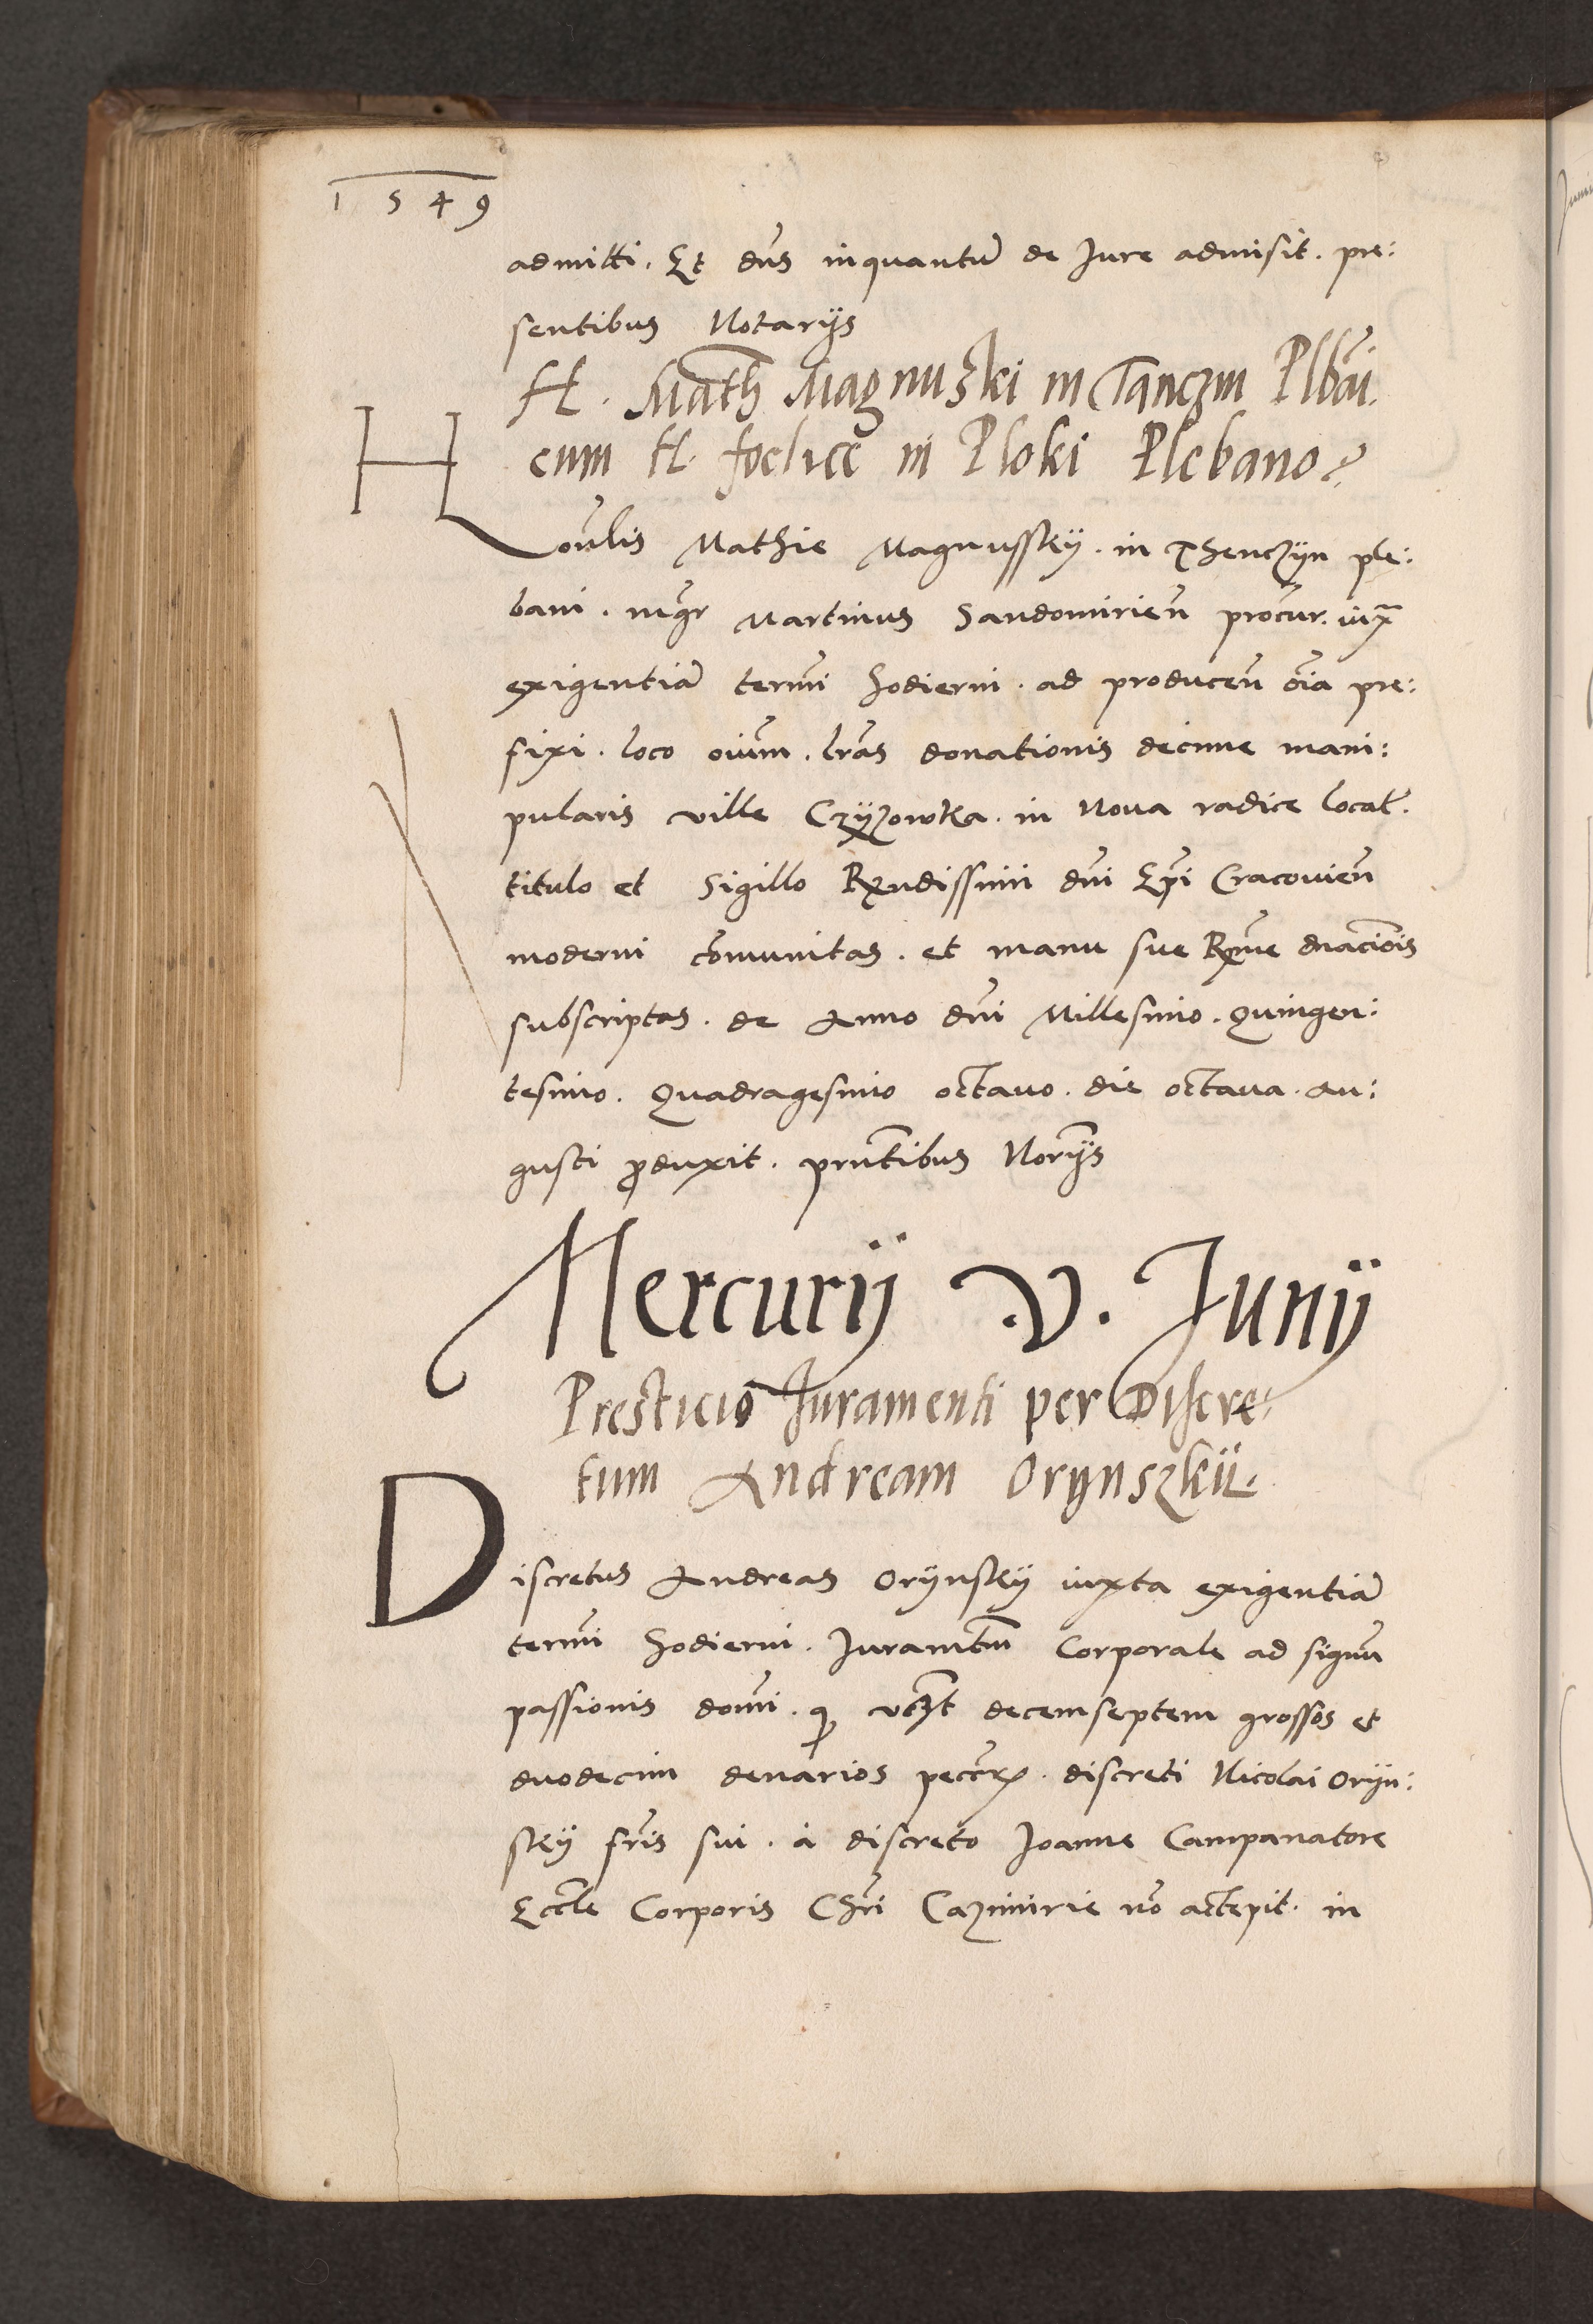 1549
admitti. Et dns inquantu de Jure admisit. pre:
sentibus Notarijs
H. Math Magnuski in Tanczin Plbni.
cum H. foelice in Ploki Plebano
Honlis Mathie Magnussky. in Thenczyn ple:
bani. mgr Martinus Sandomirien procur. iux
exigentia termi hodierni. ad producen oia pre:
fixi. loco oium. lras donationis decime mani:
pularis ville Czyzowka. in Noua radice locat.
titulo et Sigillo Rndissimi dni Epi Cracouien
moderni comunitas. et manu sue Rme dnacionis
subscriptas. de Anno dni Millesimo. Quingen:
tesimo. Quadragesimo octauo. die octaua. Au:
gusti produxit. prntibus Norijs
Mercurij .V. Junij
Presticio Juramenti per Discre:
tum Andream Orynszkii.
Discretus Andreas Orynsky iuxta exigentia
termi hodierni. Juramtm Corporale ad signu
passionis domi. q vczt decemseptem grossos et
duodecim denarios peccrz. discreti Nicolai Oryn:
sky fris sui. a discreto Joanne Campanatore
Eccle Corporis Chri Cazimirie no accepit. in